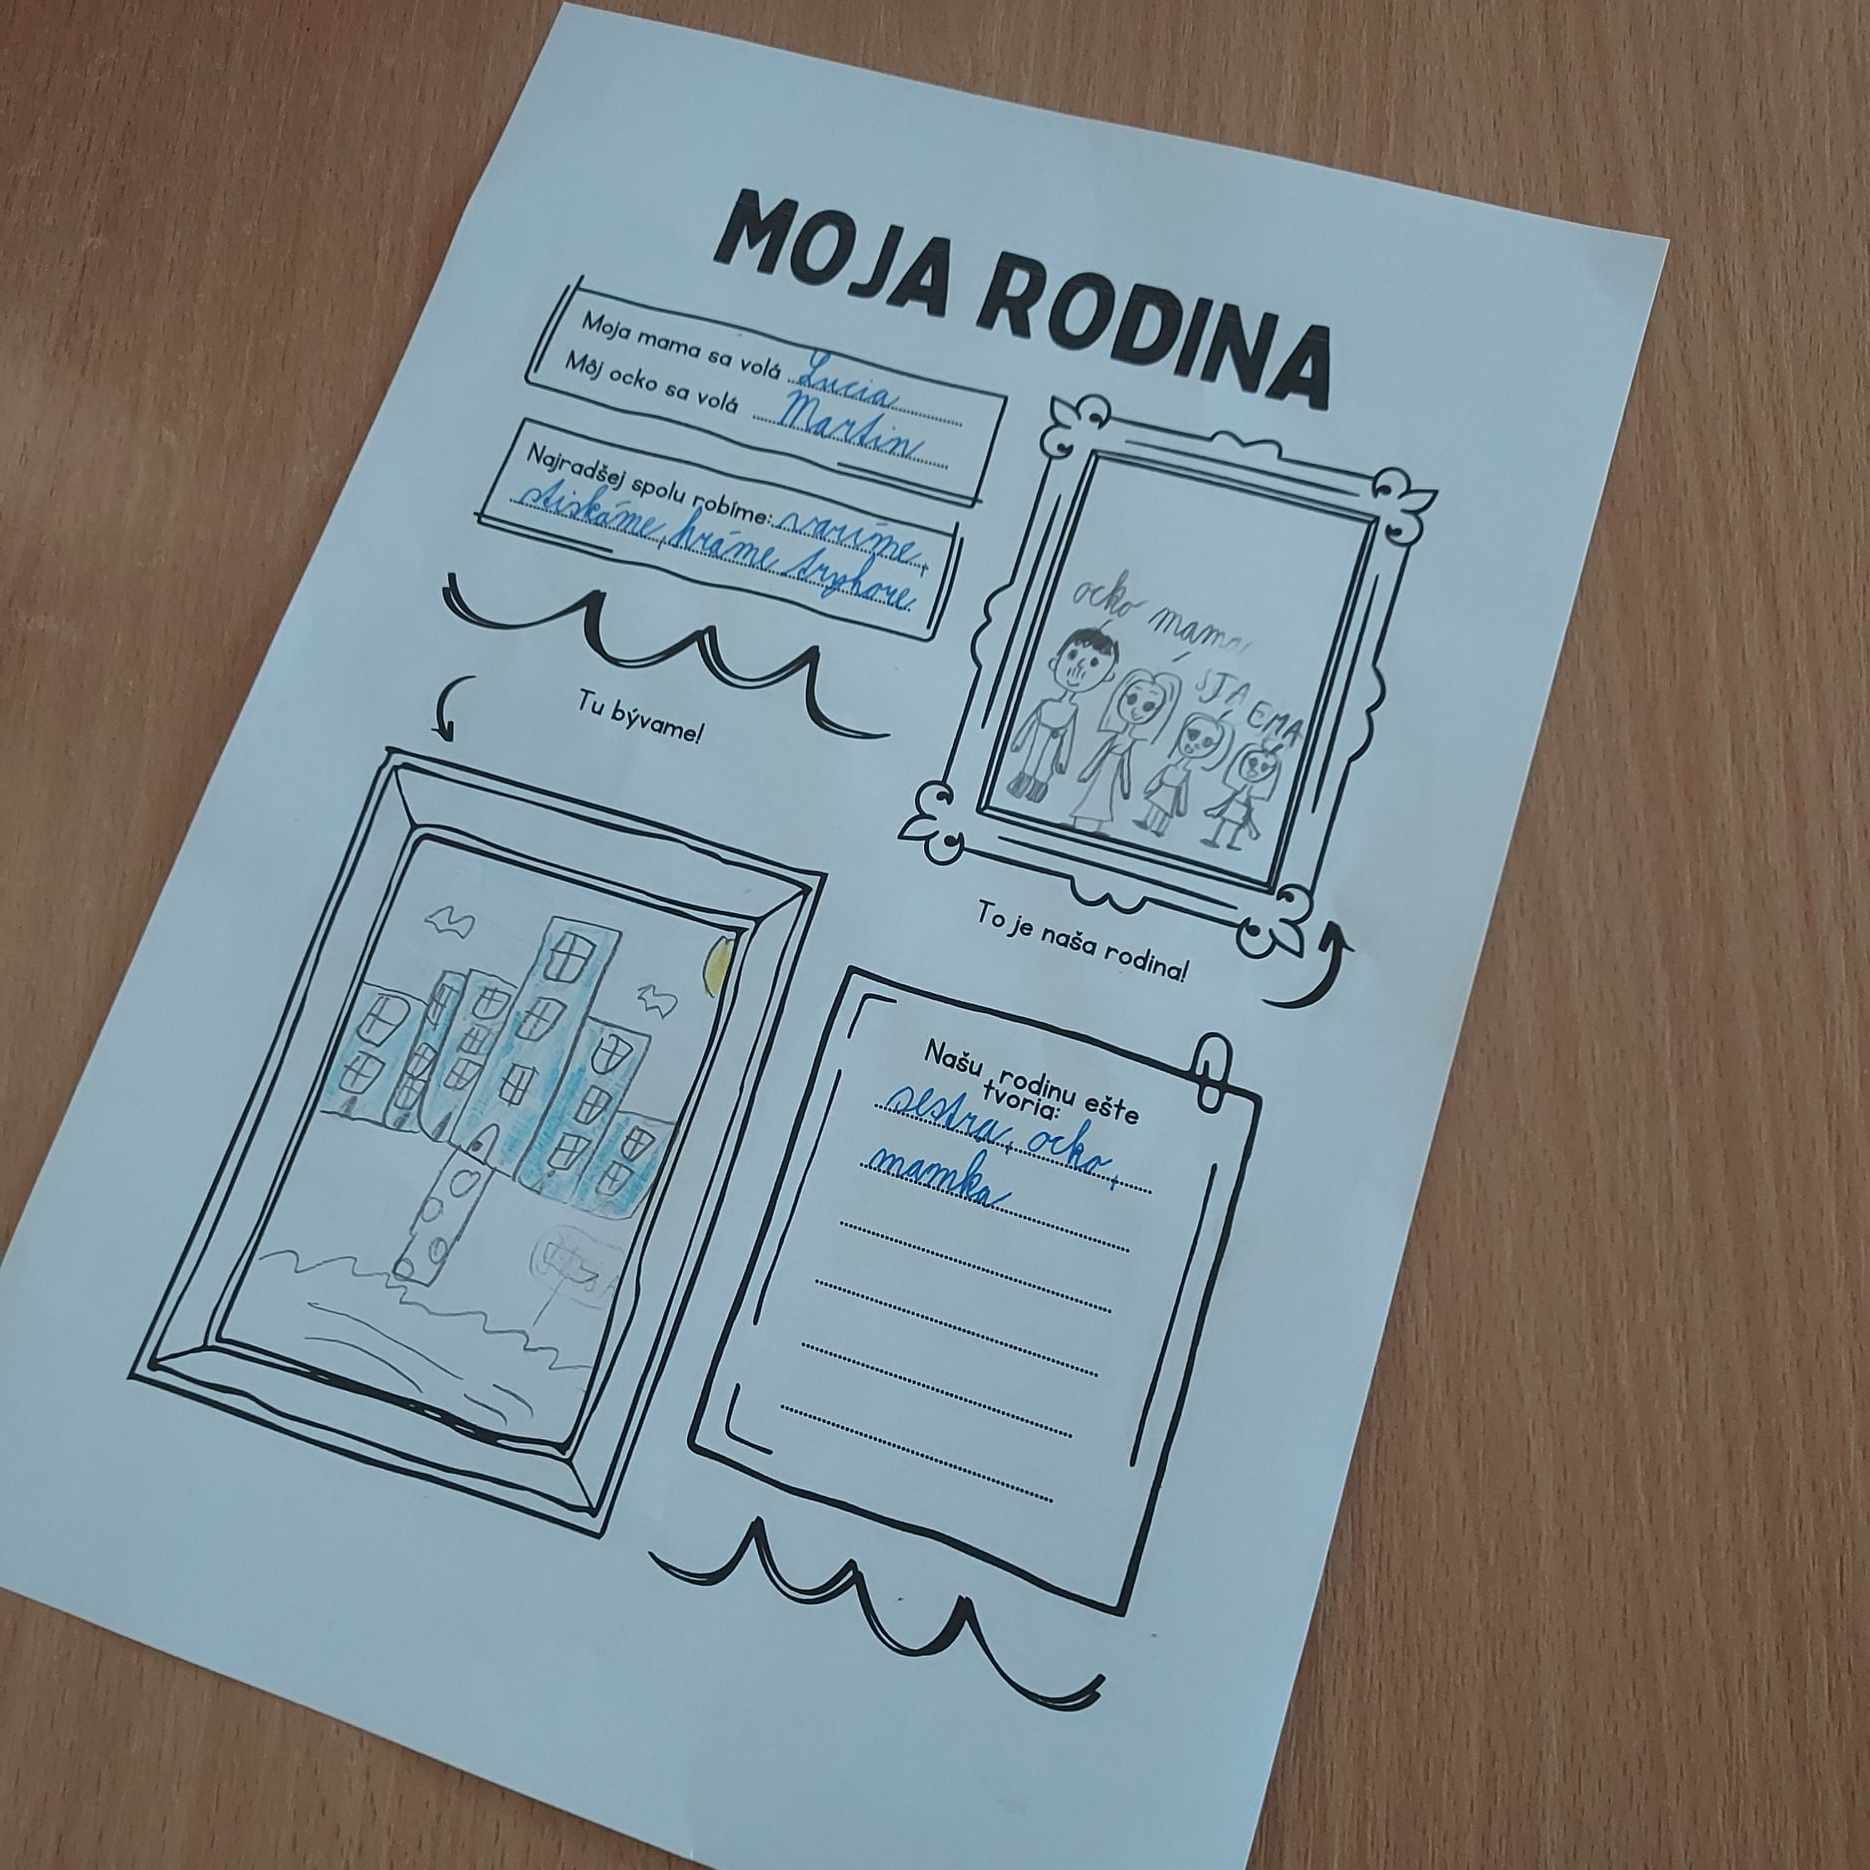 MOJA RODINA
Moja mama sa volá Lucia
Môj ocko sa volá Martin
Najradšej spolu robíme: varíme,
stiskáme, hráme
ocko mama
JA EMA
Tu bývame!
To je naša rodina!
Našu rodinu ešte
tvoria:
sestra, ocko,
mamka